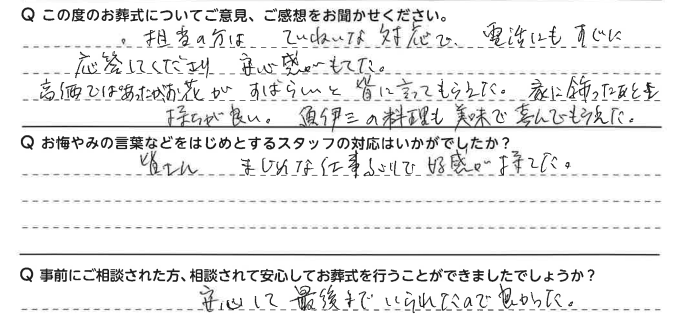 Q この度のお葬式についてご意見、ご感想をお聞かせください。
・担当の方は ていねいな対応で、電話にもすぐに
応答してくださり 安心感がもてた。
高価ではあったがお花が すばらしいと 皆に言ってもらえた。家に飾ったあとも
持ちが良い。須伊三の料理も美味で喜んでもらえた。
Q お悔やみの言葉などをはじめとするスタッフの対応はいかがでしたか?
皆さん まじめな仕事ぶりで 好感が持てた。
Q 事前にご相談された方、相談されて安心してお葬式を行うことができましたでしょうか?
安心して 最後まで いられたので 良かった。